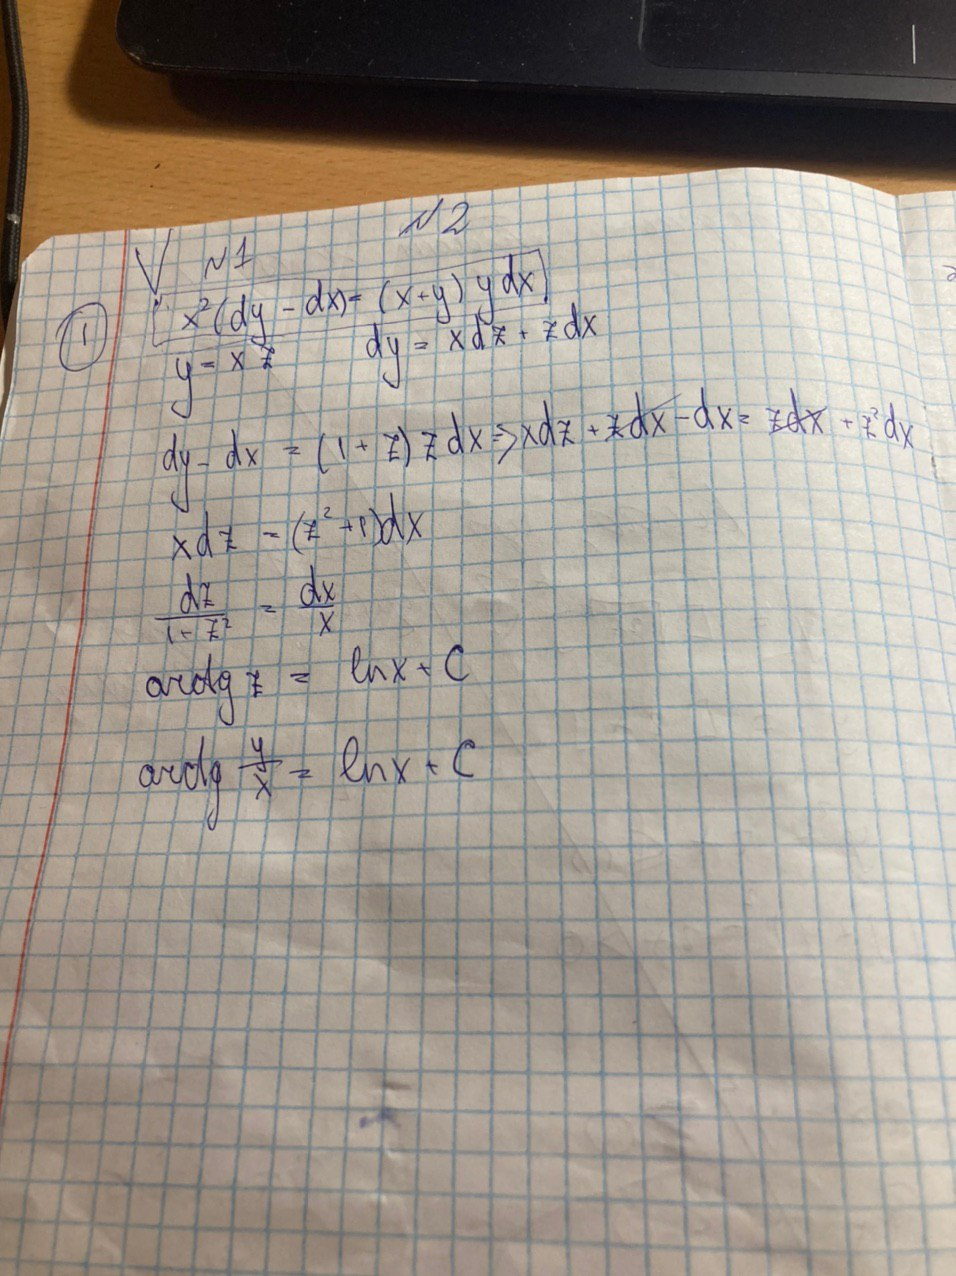 √ №1 №2
① x²(dy - dx) = (x+y) y dx
y = xz dy = xdz + zdx
dy - dx = (1 + z) z dx ⇒ xdz + zdx - dx = zdx + z²dx
xdz = (z² + 1)dx
dz/(1+z²) = dx/x
arctg z = lnx + C
arctg y/x = lnx + C